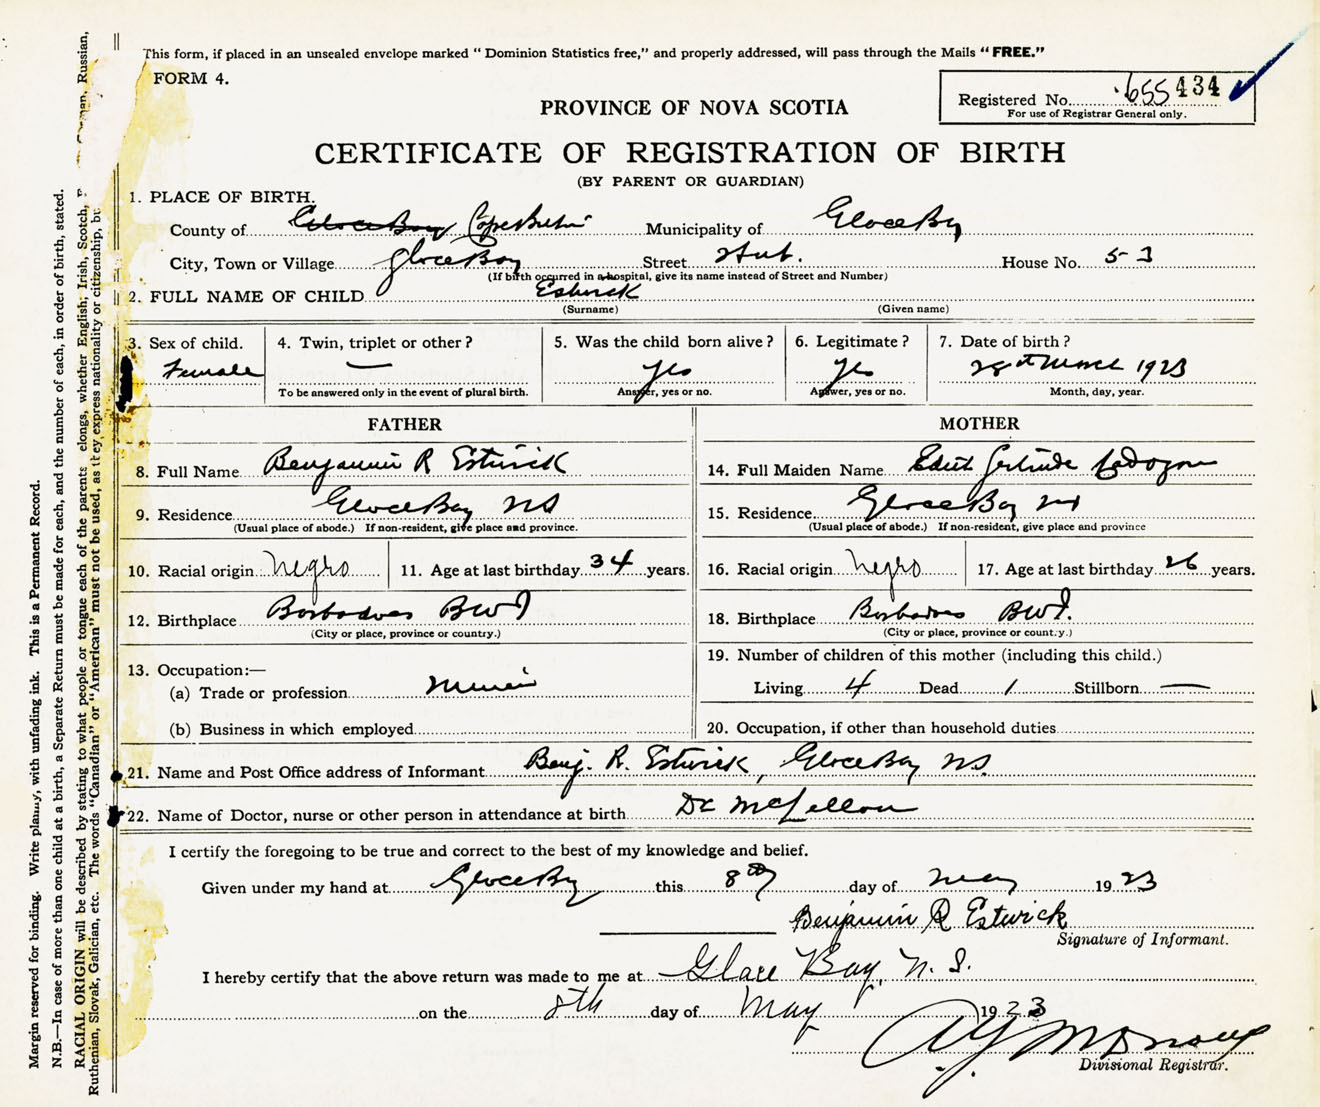 This form, if placed in an unsealed envelope marked "Dominion Statistics free," and properly addressed, will pass through the Mails "FREE."
FORM 4.
Registered No. 655434
For use of Registrar General only.
PROVINCE OF NOVA SCOTIA
CERTIFICATE OF REGISTRATION OF BIRTH
(BY PARENT OR GUARDIAN)
1. PLACE OF BIRTH.
County of Glace Bay Cape Breton Municipality of Glace Bay
City, Town or Village Glace Bay Street Hub. House No. 53
(If birth occurred in a hospital, give its name instead of Street and Number)
2. FULL NAME OF CHILD Estwick
(Surname) (Given name)
3. Sex of child. 4. Twin, triplet or other? 5. Was the child born alive? 6. Legitimate? 7. Date of birth?
Female — Yes Yes 28th March 1923
To be answered only in the event of plural birth. Answer, yes or no. Answer, yes or no. Month, day, year.
FATHER MOTHER
8. Full Name Benjamin R Estwick 14. Full Maiden Name Edith Gertrude
9. Residence Glace Bay NS 15. Residence Glace Bay NS
(Usual place of abode.) If non-resident, give place and province. (Usual place of abode.) If non-resident, give place and province
10. Racial origin Negro 11. Age at last birthday 34 years. 16. Racial origin Negro 17. Age at last birthday 26 years.
12. Birthplace Barbadoes BWI 18. Birthplace Barbadoes BWI.
(City or place, province or country.) (City or place, province or country.)
13. Occupation:— 19. Number of children of this mother (including this child.)
(a) Trade or profession Miner Living 4 Dead 1 Stillborn —
(b) Business in which employed 20. Occupation, if other than household duties
21. Name and Post Office address of Informant Benj. R. Estwick, Glace Bay NS.
22. Name of Doctor, nurse or other person in attendance at birth Dr McLellan
I certify the foregoing to be true and correct to the best of my knowledge and belief.
Given under my hand at Glace Bay this 8th day of May 1923
Benjamin R Estwick
Signature of Informant.
I hereby certify that the above return was made to me at Glace Bay, N. S.
on the 8th day of May 1923
Divisional Registrar.
Margin reserved for binding. Write plainly, with unfading ink. This is a Permanent Record.
N.B.—In case of more than one child at a birth, a Separate Return must be made for each, and the number of each, in order of birth, stated.
RACIAL ORIGIN will be described by stating to what people or tongue each of the parents elongs, whether English, Irish, Scotch, Russian,
Ruthenian, Slovak, Galician, etc. The words "Canadian" or "American" must not be used, as they express nationality or citizenship,